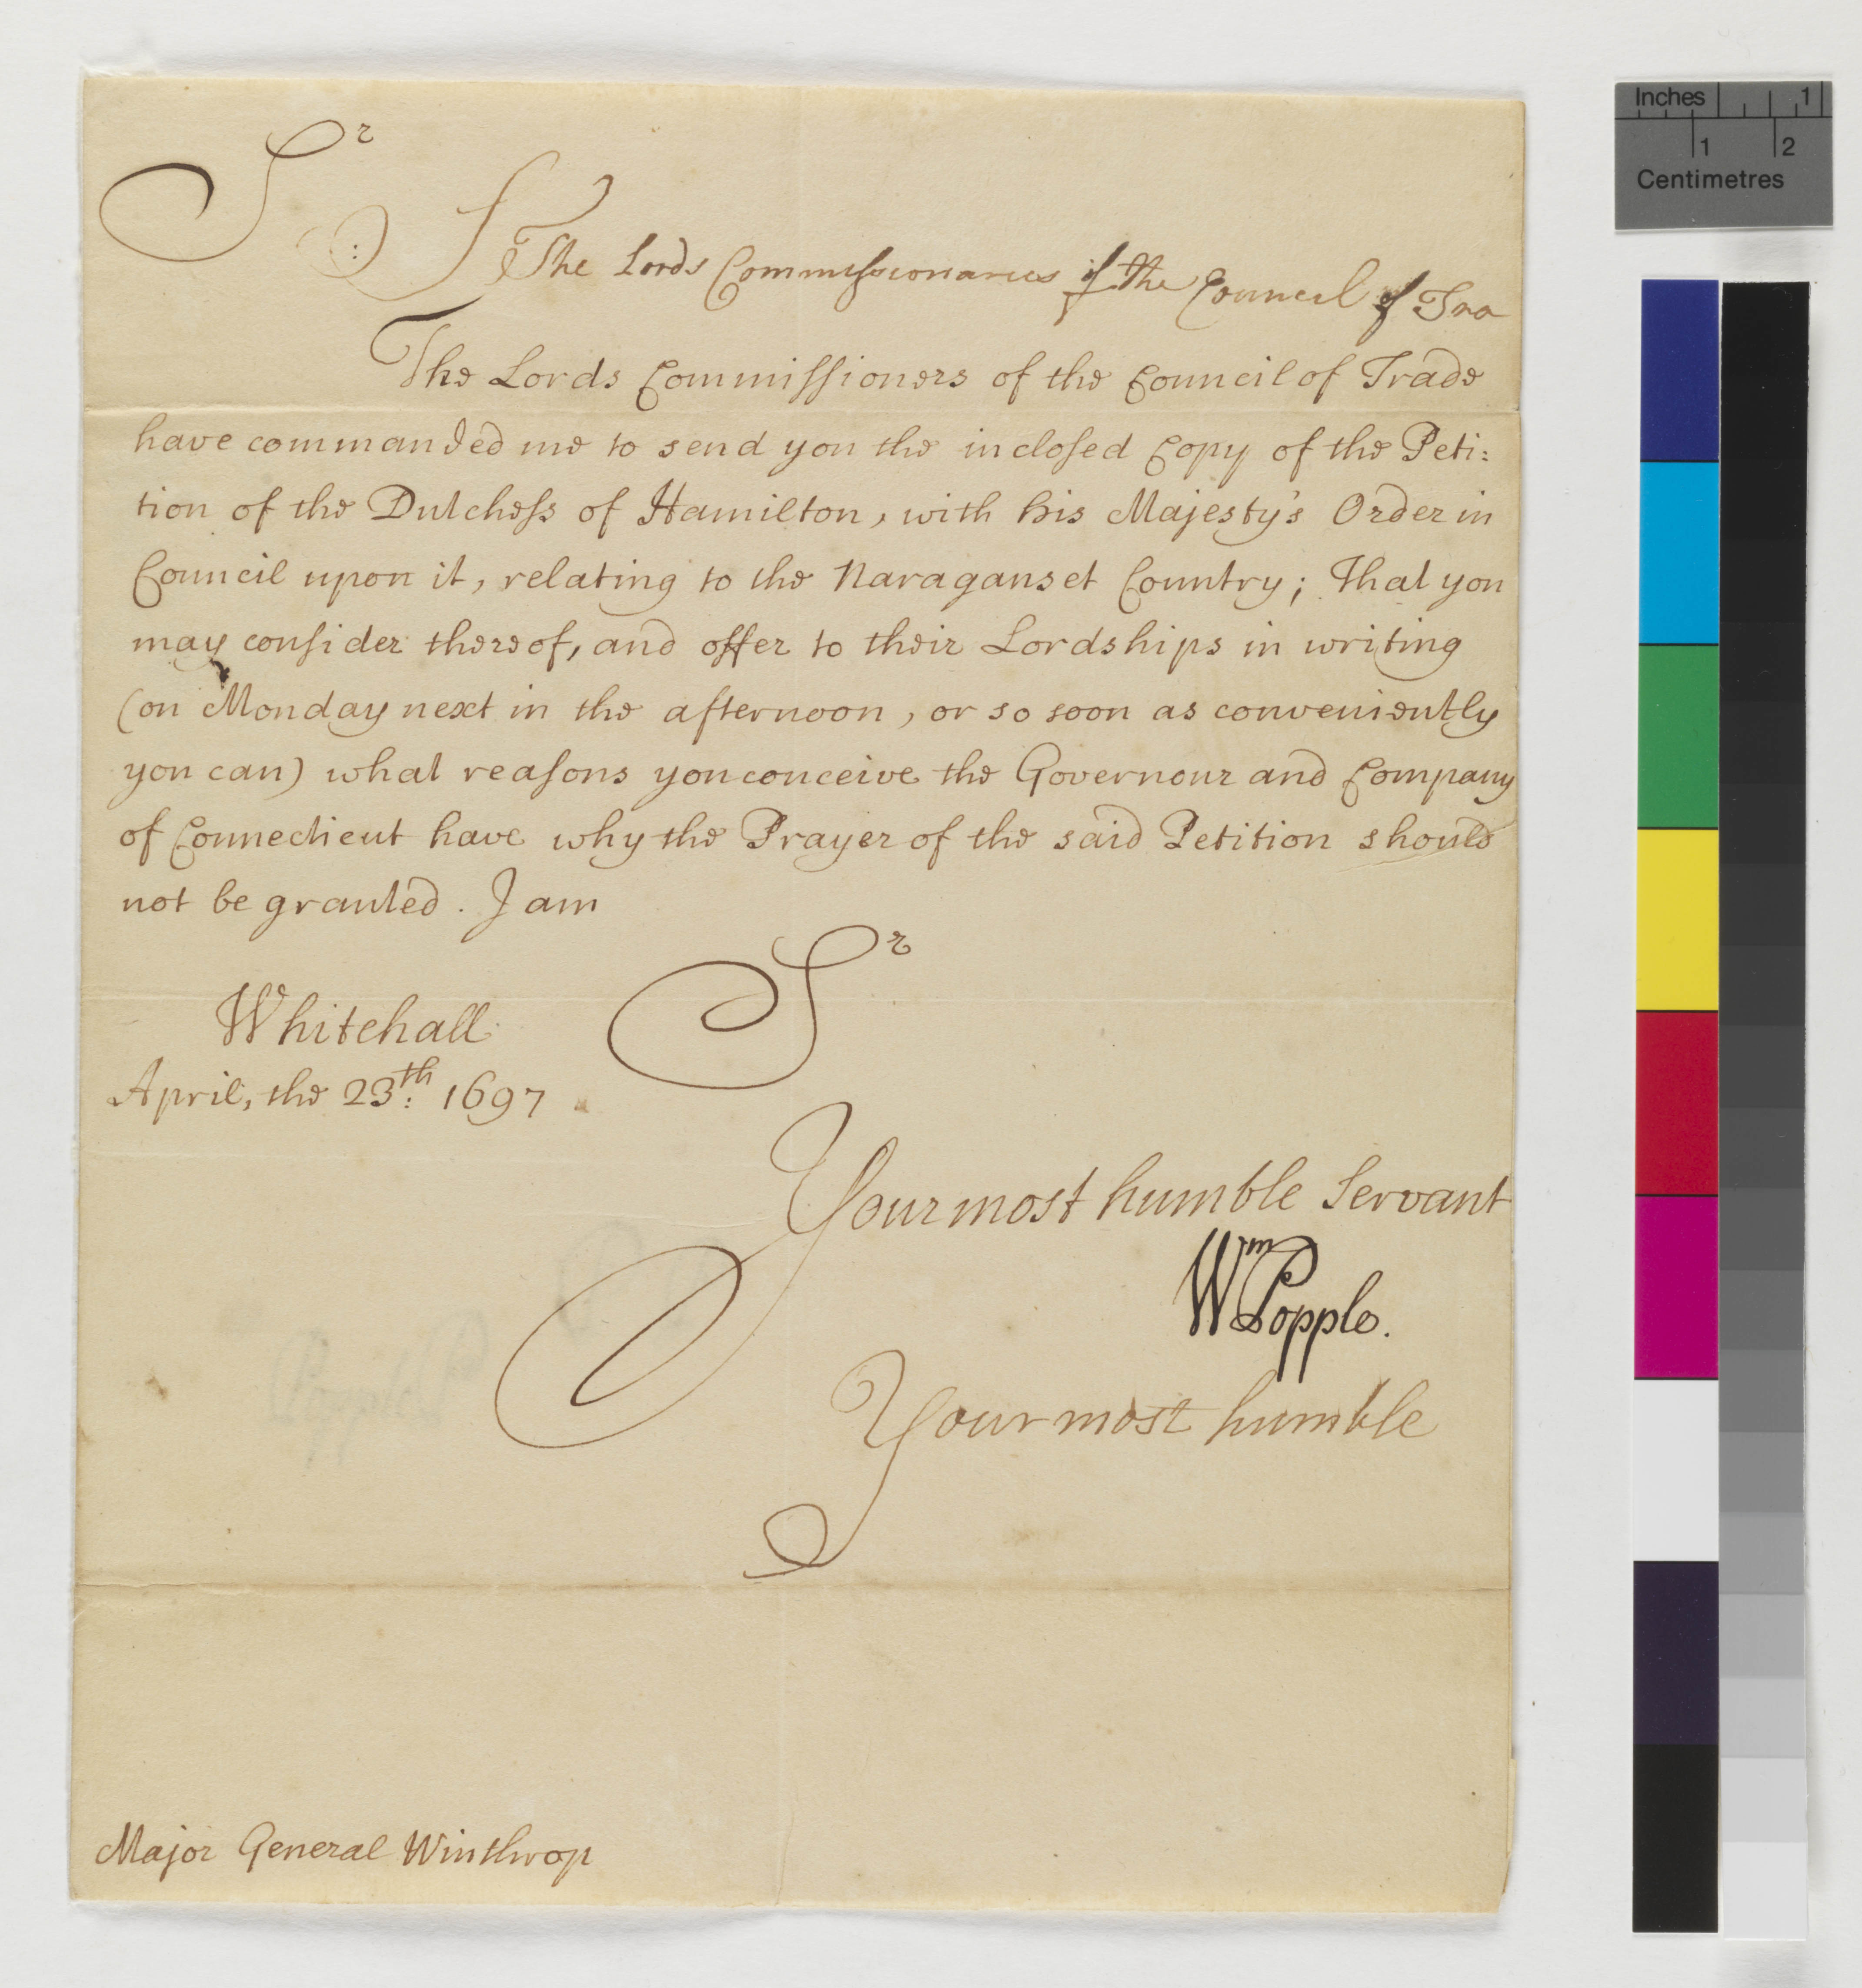 Sr
The Lords Commissionares of the Council of Tra
The Lords Commissioners of the Council of Trade
have commanded me to send you the inclosed Copy of the Peti:
tion of the Dutchess of Hamilton, with his Majesty's Order in
Council upon it, relating to the Naraganset Country; That you
may consider thereof, and offer to their Lordships in writing
(on Monday next in the afternoon, or so soon as conveniently
you can) what reasons you conceive the Governour and Company
of Connecticut have why the Prayer of the said Petition should
not be granted. I am
Sr
Whitehall
April, the 23th: 1697
Your most humble Servant
Wm Popple.
Your most humble
Major General Winthrop
Inches 1
1 2
Centimetres